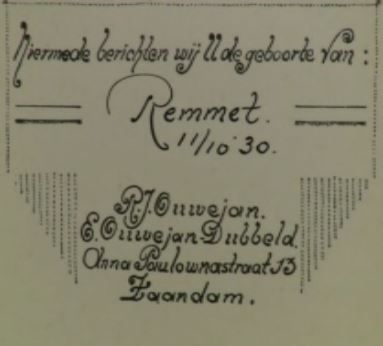 Hiermede berichten wij U de geboorte van:
Remmet.
11/10 '30.
R.J. Ouwejan.
E. Ouwejan-Dubbeld.
Anna Paulownastraat 13
Zaandam.